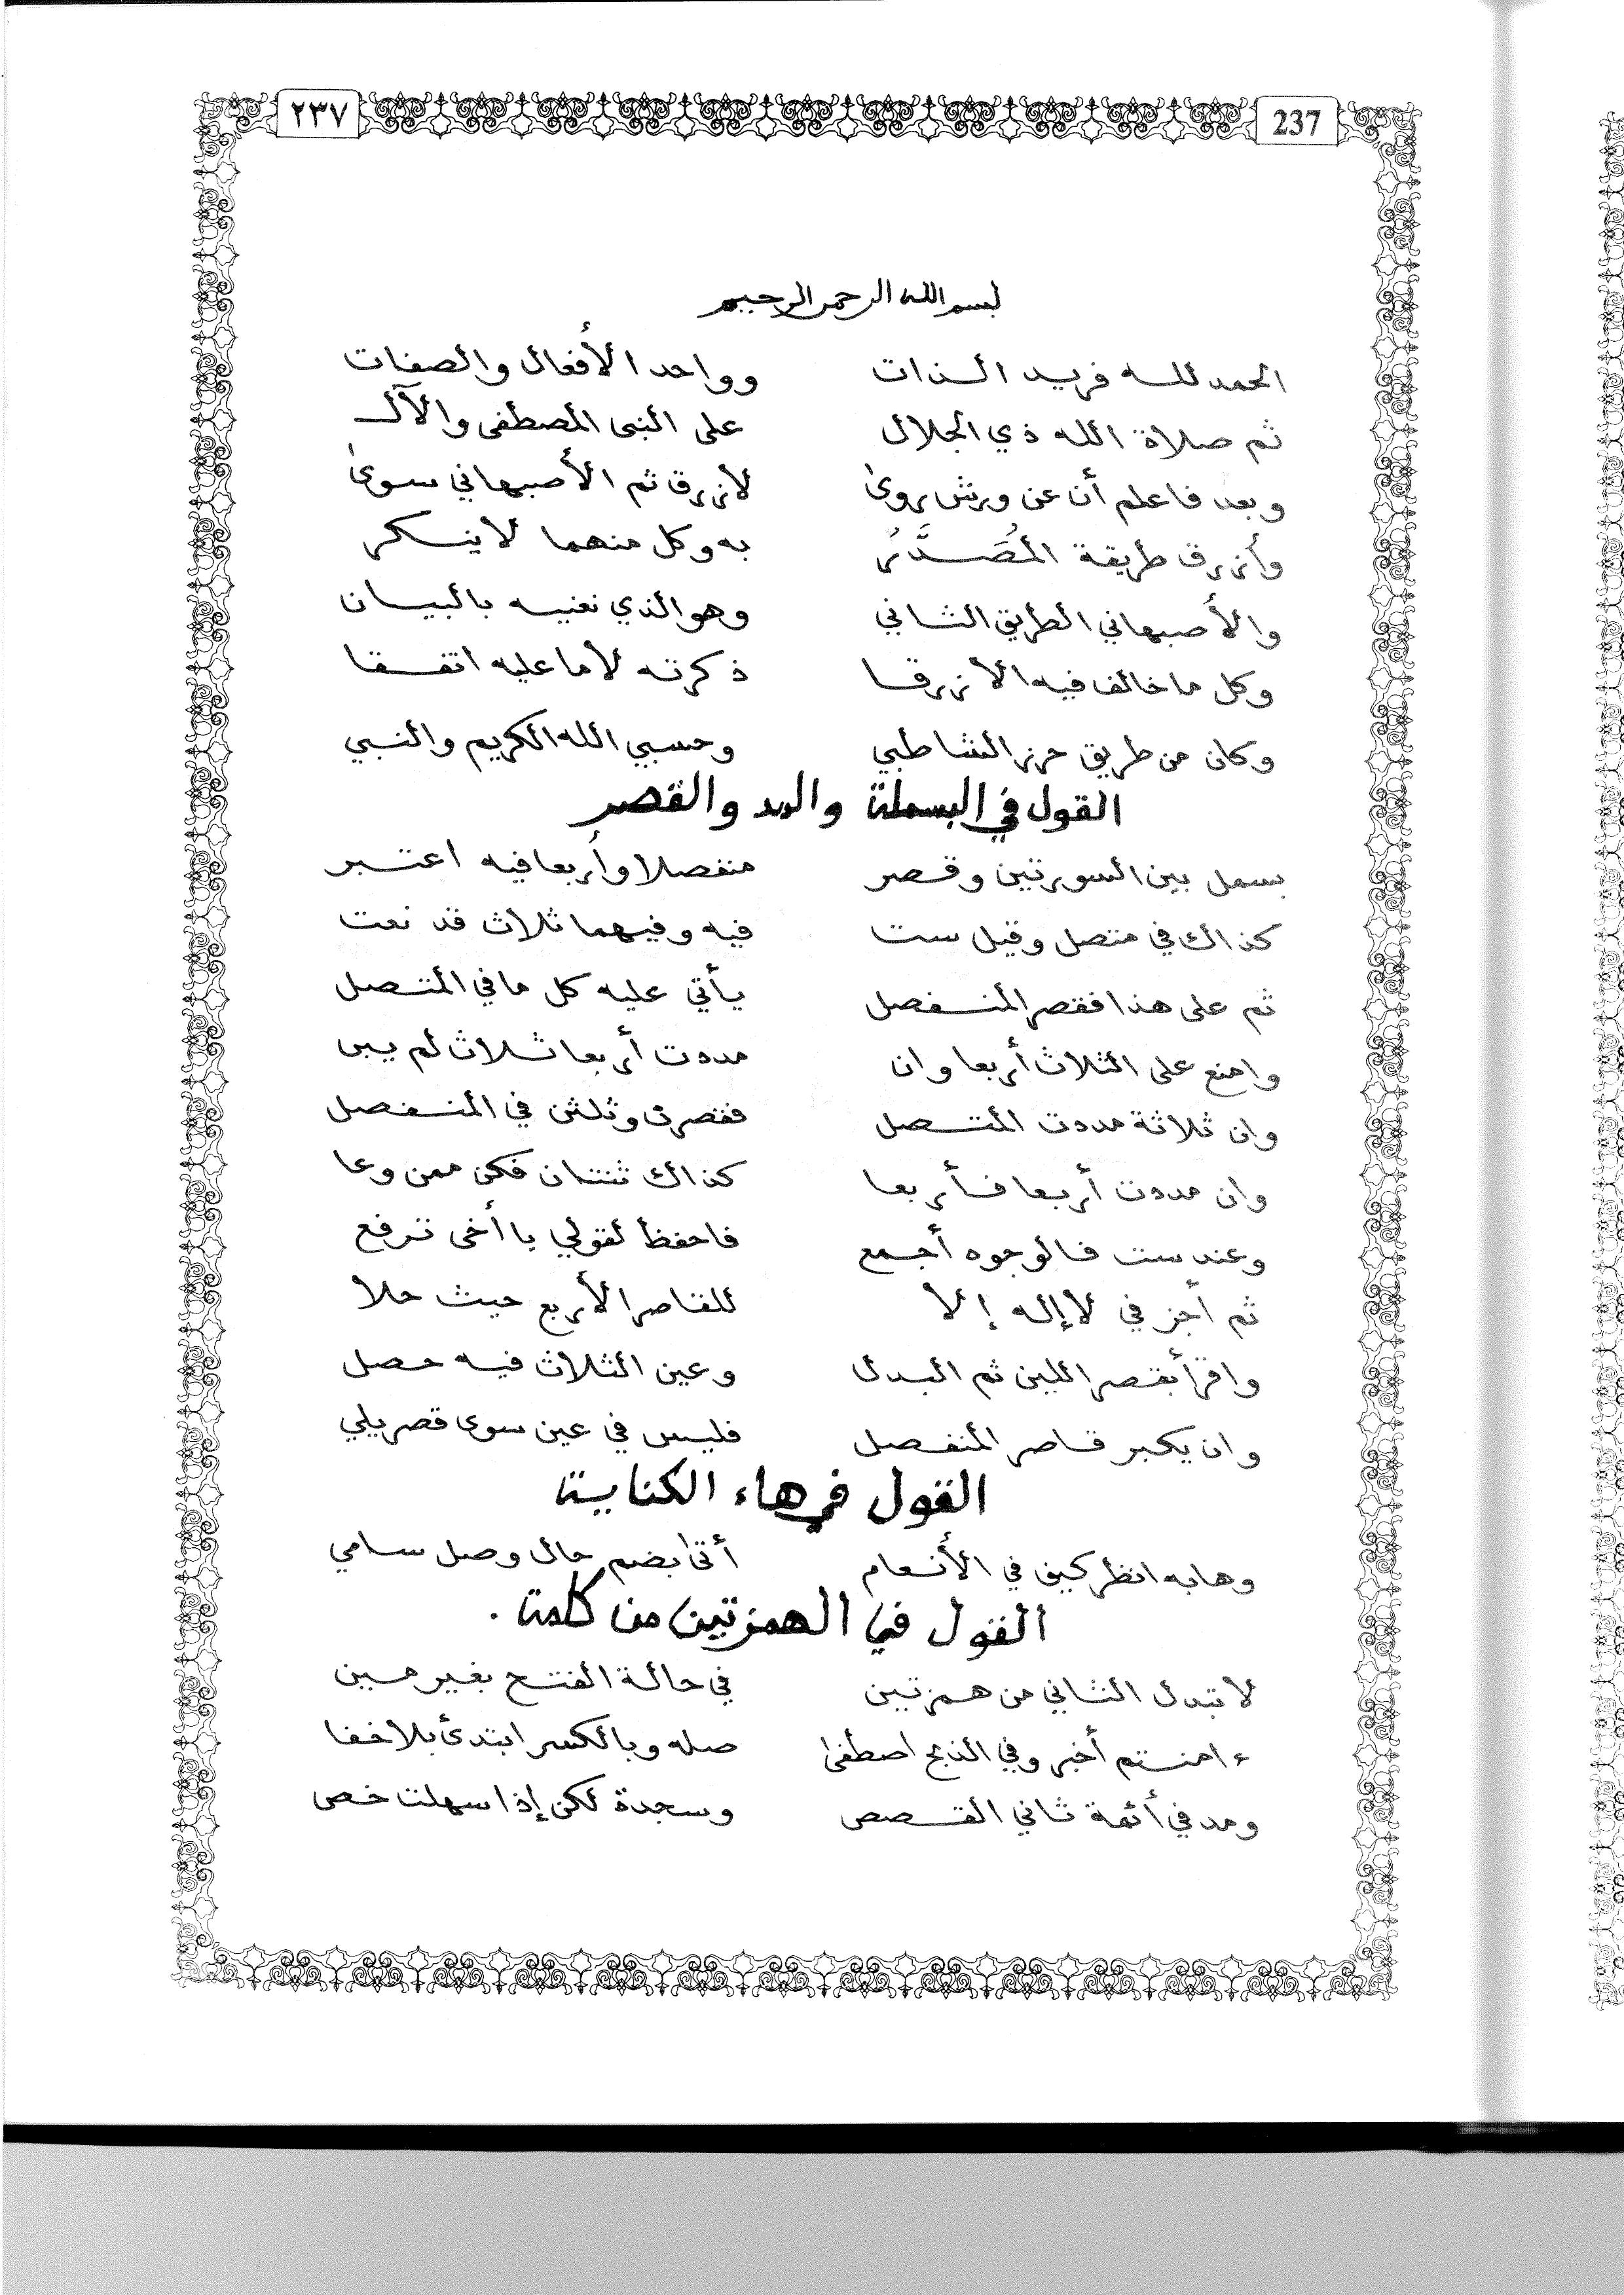 ٢٣٧
237
بسم الله الرحمن الرحيم
الحمد لله فريد الذات ووٰاحد الأفعال والصفات
ثم صلاة الله ذي الجلال على النبى المصطفى والآل
وبعد فاعلم أن عن ورش روىٰ لازرق ثم الأصبهاني سوىٰ
وأزرق طريقة المُصَدَّرُ به وكل منهما لاينكر
والأصبهاني الطريق الثاني وهو الذي نعنيه بالبيان
وكل ما خالف فيه الازرقا ذكرته لاما عليه اتفقا
وكان من طريق حرز الشاطبي وحسبي الله الكريم والنبي
القول في البسملة والمد والقصر
بسمل بين السورتين وقصر منفصلا وأربعا فيه اعتبر
كذاك في متصل وقيل ست فيه وفيهما ثلاث قد نعت
ثم على هذا فقصر المنفصل يأتي عليه كل ما في المتصل
وامنع على الثلاث أربعا وان مددت أربعا ثلاث لم يبن
وان ثلاثة مددت المتصل فقصرن وثلثن في المنفصل
وان مددت أربعا فأربعا كذاك ثنتان فكن ممن وعا
وعند ست فالوجوه أجمع فاحفظ لقولي يا أخى ترفع
ثم أجز في لا إله إلا للقاصر الأربع حيث حلا
واقرأ بقصر اللين ثم البدل وعين الثلاث فيه حصل
وان يكبر قاصر المنفصل فليس في عين سوى قصر يلي
القول في هاء الكناية
وهابه انظر كيف في الأنعام أتىٰ بضم حال وصل سامي
القول في الهمزتين من كلمة .
لا تبدل الثاني من همزتين في حالة الفتح بغير مين
ءامنتم أخبر وفي الذبح اصطفىٰ صله وبالكسر ابتدئ بلا خفا
ومد في أئمة ثاني القصص وسجدة لكن إذا سهلت خص